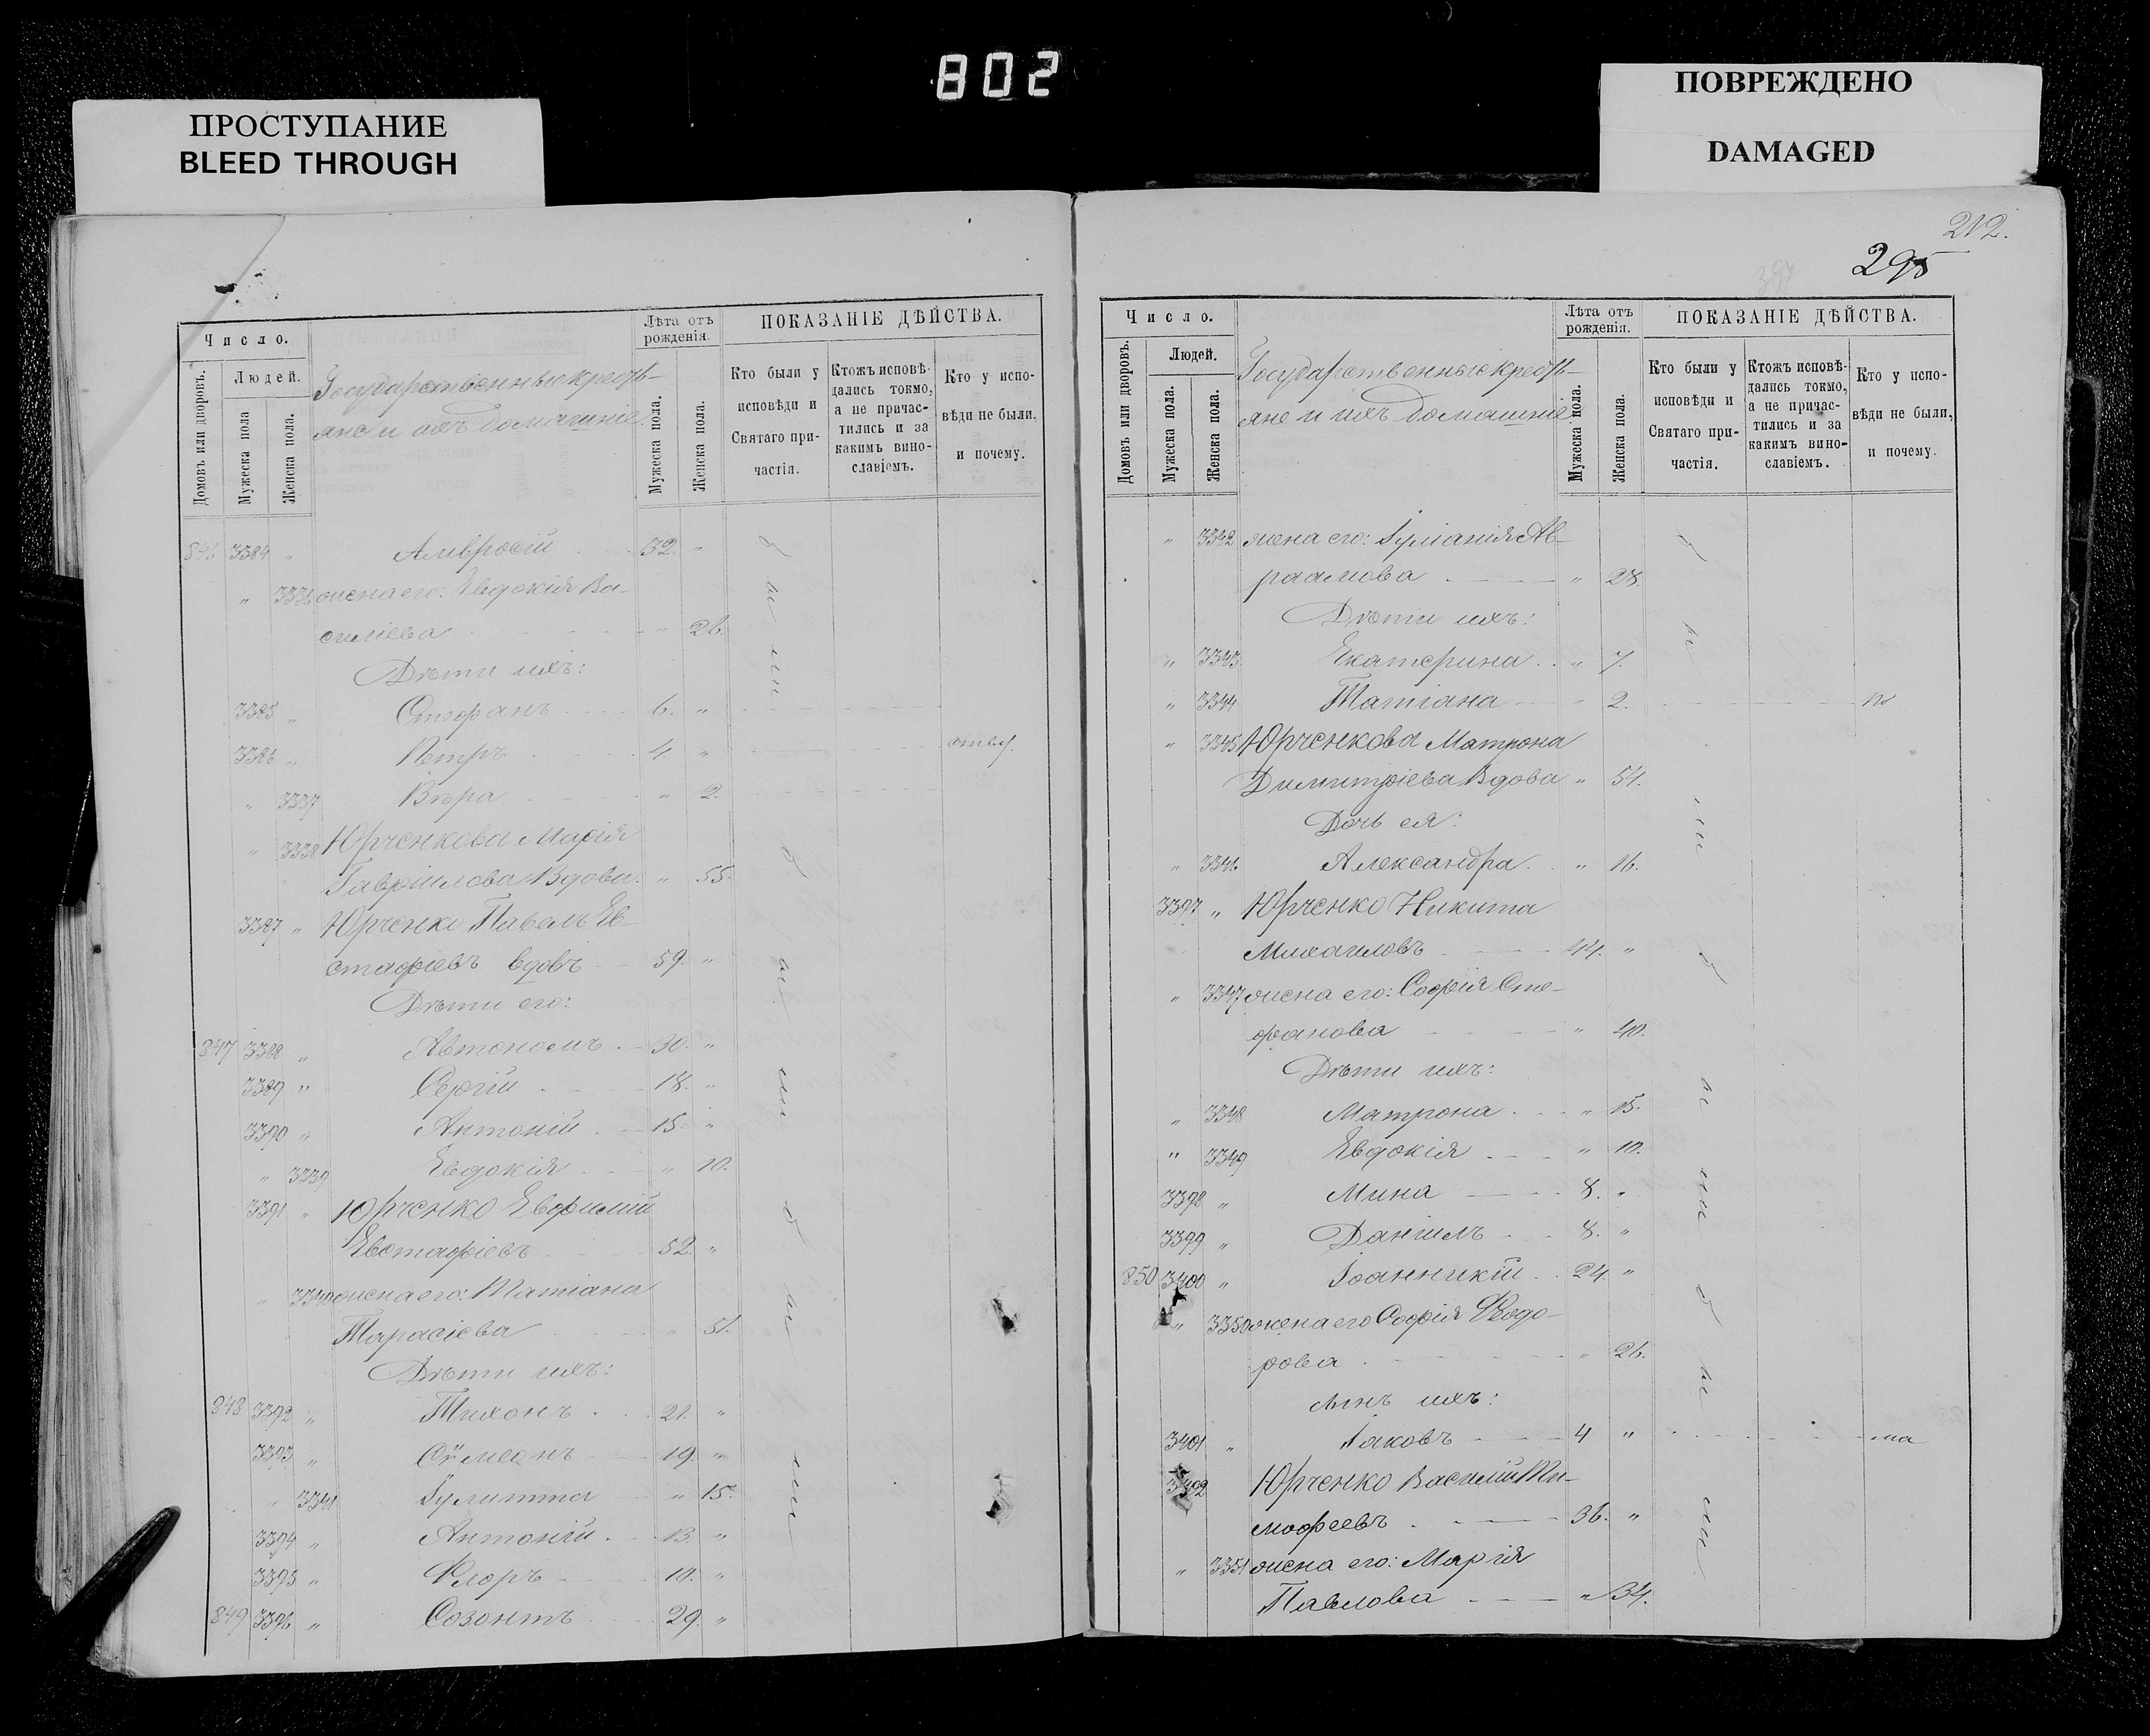 802
ПРОСТУПАНИЕ
BLEED THROUGH
ПОВРЕЖДЕНО
DAMAGED
Число.
Домовъ или дворовъ.
Людей.
Мужеска пола
Женска пола.
Государственные кресть-
яне и ихъ домашніе.
Лѣта отъ рожденія.
Мужеска пола.
Женска пола.
ПОКАЗАНІЕ ДѢЙСТВА.
Кто были у исповѣди и Святаго при-частія.
Ктожъ исповѣ-дались токмо, а не причас-тились и за какимъ вино-славіемъ.
Кто у испо-вѣди не были, и почему.
846 3384 " Амвросій 32. "
" 3336 жена его: Евдокія Ва-
силіева " 26.
Дѣти ихъ:
3385 " Стефанъ 6. "
3386 " Петръ 4. "
" 3337 Вѣра " 2.
" 3338 Юрченкова Марія
Гавріилова Вдова. " 55.
3387 " Юрченко Павелъ Ев-
стафіевъ вдовъ 59. "
Дѣти его:
847 3388 " Автономъ 30. "
3389 " Сергій 18. "
3390 " Антоній 15. "
" 3339 Евдокія " 10.
3391 " Юрченко Евфимій
Евстафіевъ 52. "
" 3340 жена его: Татіана
Тарасіева " 51.
Дѣти ихъ:
848 3392 " Тихонъ 21. "
3393 " Сѵмеонъ 19. "
" 3341 Іулитта " 15.
3394 " Антоній 13. "
3395 " Флоръ 10. "
849 3396 " Созонтъ 29. "
были
были
были
212.
295
Число.
Домовъ или дворовъ.
Людей.
Мужеска пола.
Женска пола.
Государственные кресть-
яне и ихъ домашніе
Лѣта отъ рожденія.
Мужеска пола.
Женска пола.
ПОКАЗАНІЕ ДѢЙСТВА.
Кто были у исповѣди и Святаго при-частія.
Ктожъ исповѣ-дались токмо, а не причас-тились и за какимъ вино-славіемъ.
Кто у испо-вѣди не были, и почему.
" 3342 жена его: Іуліанія Ав-
раамова " 28.
Дѣти ихъ:
" 3343 Екатерина " 7.
" 3344 Татіана " 2.
" 3345 Юрченкова Матрона
Димитріева Вдова " 54.
Дочь ея:
" 3346 Александра " 16.
3397 " Юрченко Никита
Михаиловъ 44. "
" 3347 жена его: Софія Сте-
фанова " 40.
Дѣти ихъ:
" 3348 Матрона " 15.
" 3349 Евдокія " 10.
3398 " Мина 8. "
3399 " Даніилъ 8. "
850 3400 " Іоанникій 24. "
" 3350 жена его Софія Ѳеодо-
рова " 26.
сынъ ихъ:
3401 " Іаковъ 4 "
3402 Юрченко Василій Ти-
моѳеевъ 36. "
" 3351 жена его: Марія
Павлова " 34.
были
были
были